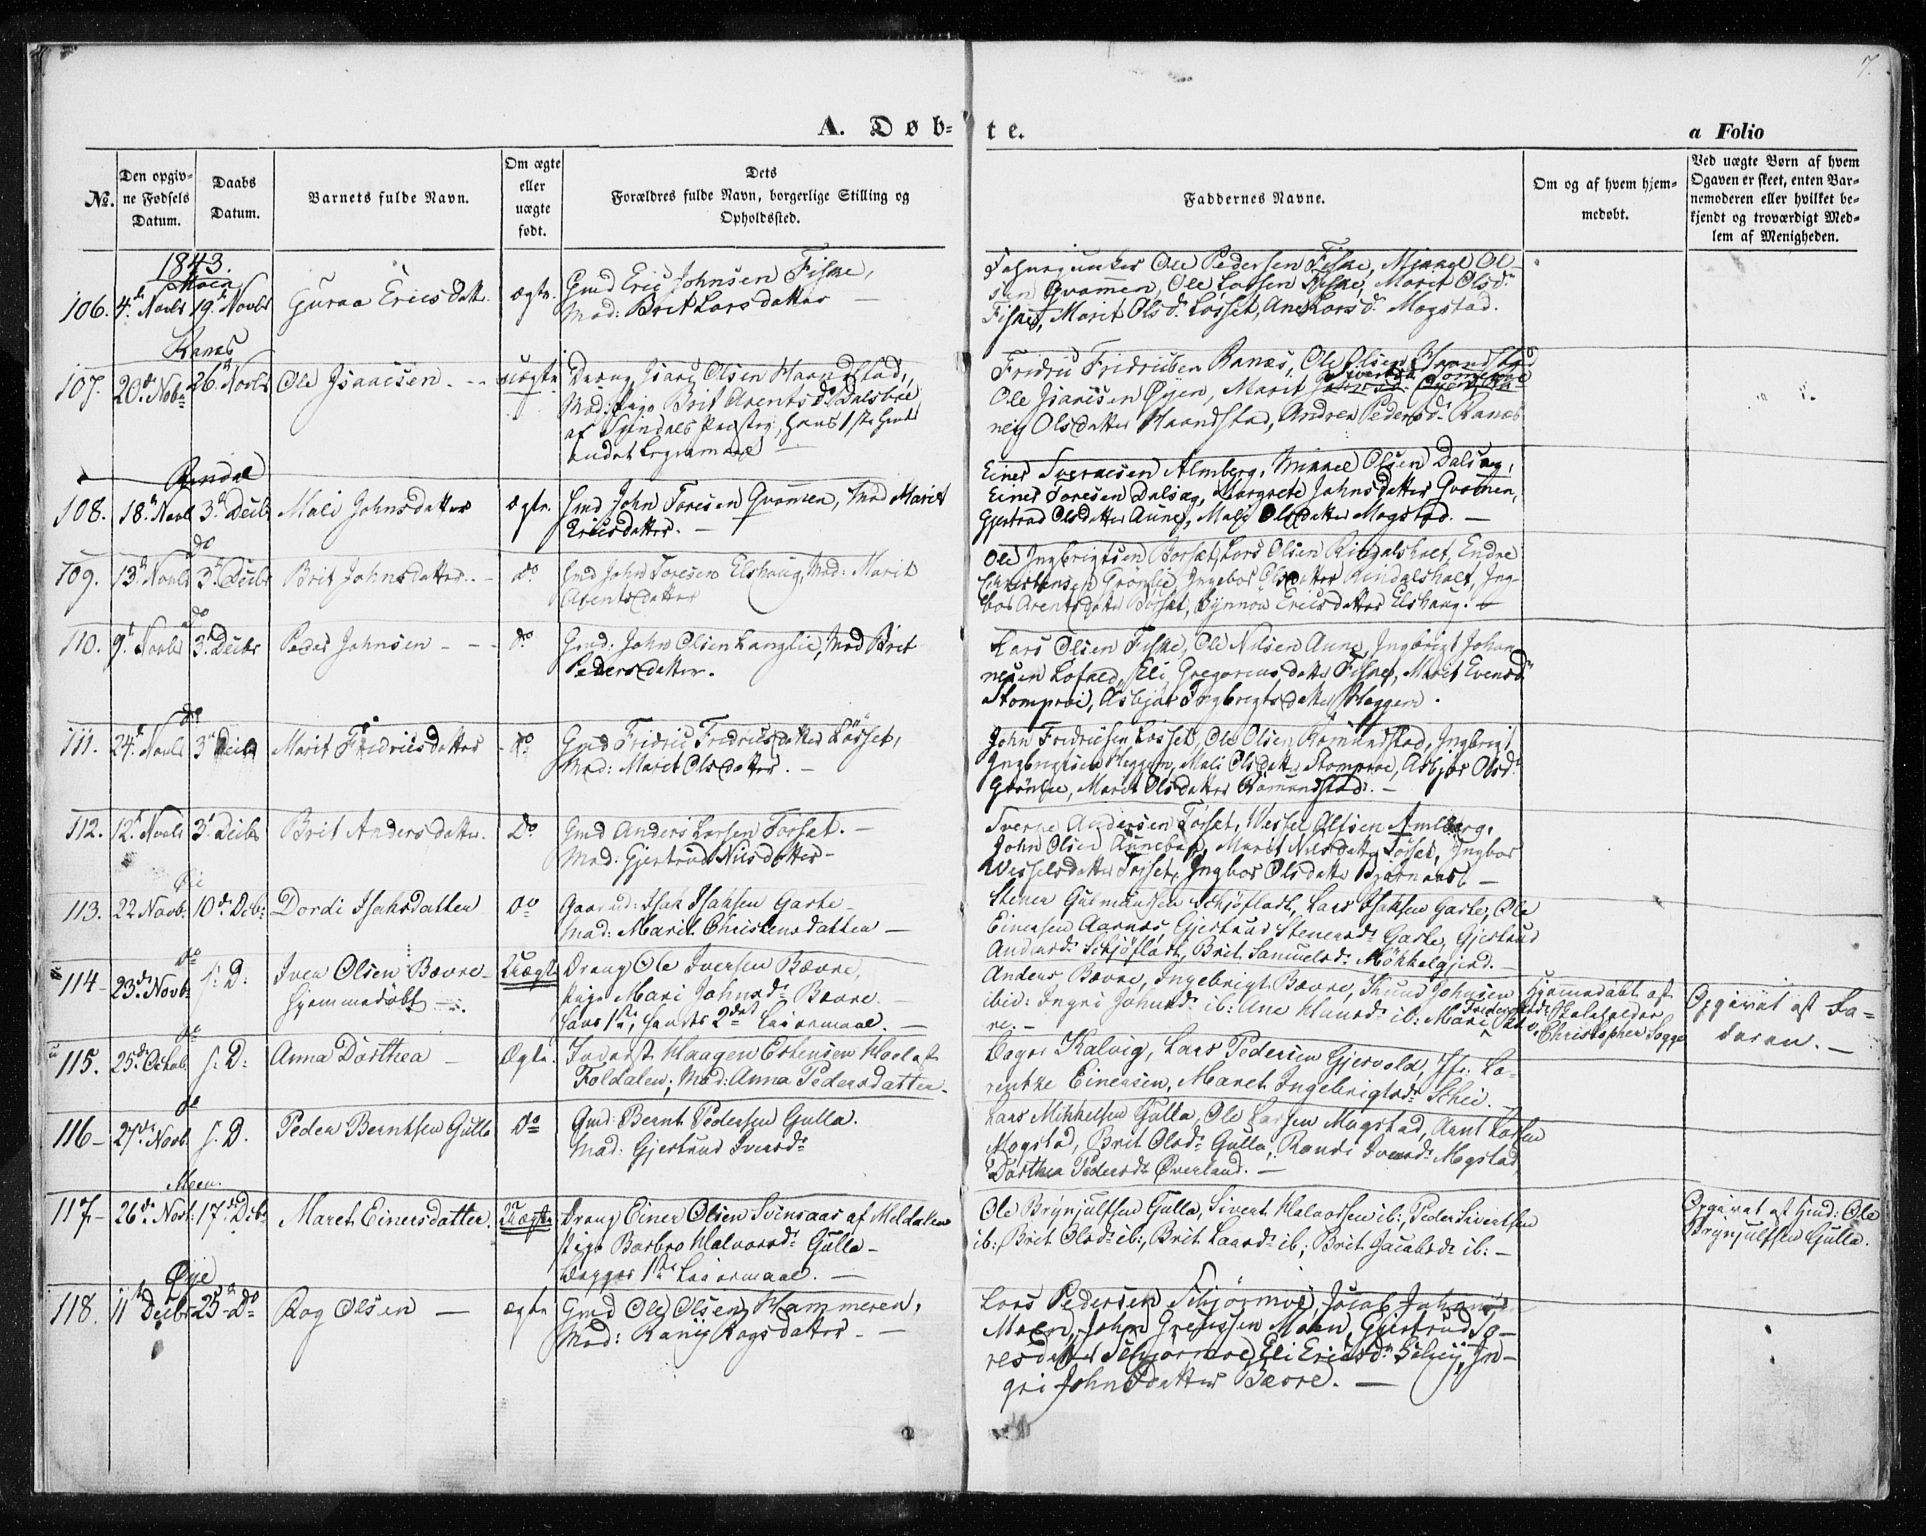 7.
A. Døbte.
a Folio
No.
Den opgivne Fødsels Datum.
Daabs Datum.
Barnets fulde Navn.
Om ægte eller uægte født.
Dets Forældres fulde Navn, borgerlige Stilling og Opholdssted.
Faddernes Navne.
Om og af hvem hjemmedøbt.
Ved uægte Børn af hvem Opgaven er skeet, enten Barnemoderen eller hvilket bekjendt og troværdigt Medlem af Menigheden.
1843.
Moen
106. 4de Novbr 19. Novbr Guraa Ericsdatt. ægte. Gmd Eric Johnsen Fiske,
Mad: Brit Larsdatter —
Ole Pedersen Fiske, Mikkel Ol-
sen Qvamen, Ole Larsen Fiske, Marit Olsd.
Fiske, Marit Olsd. Løsset, Ane Larsd. Mogstad.
Ranæs
107. 20de Novbr 26de Novbr Ole Isaacsen. uægte Dreng Isaac Olsen Haandstad,
Pige Brit Arentsd. Dalsbøe
af Præstg, hans 1ste hendes
andet Leiermaal
Fridric Fridricsen Ranæs, Ole Olsen Haandstad
Ole Isacsen Øyen, Marit
Olsdatter Haandstad, Andrea Pedersd. Ranæs
Rindal
108. 18. Novbr 3. Decbr Mali Johnsdatter ægte. Gmd John Toresen Qvamen, Mad Marit
Ericsdatter. —
Einer Sverkesen Almberg, Mikkel Olsen Dalsæg,
Einer Toresen Dalsæg, Margrete Johnsdatter Qvamen,
Gjertrud Olsdatter Aune, Mali Olsdatter Mogstad. —
do
109. 13. Novbr 3. Decbr Brit Johnsdatter. do Gmd John Toresen Elshaug, Mad: Marit
Arentsdatter
Ole Ingbrigtsen Borset, Lars Olsen Rindalsholt, Endre
Christensen Grønlie, Ingebor Olsdatter Rindalsholt, Ing-
bor Arentsdatter Borset, Synnou Ericsdatter Elshaug. —
do
110. 9. Novbr 3. Decbr Peder Johnsen - - - do Gmd. John Olsen Langlie, Mad Brit
Pedersdatter.
Lars Olsen Fiske, Ole Nilsen Aune, Ingbrigt Johan-
nesen Løfald, Eli Gregoriusdatter Fiske, Marit Evensd.
Stomproe, Asbjør Ingbrigtsdatter Heggem.
do
111. 24. Novbr 3. Decbr Marit Fridricsdatter do Gmd Fridric Fredricsdatter Løsset,
Mad: Marit Olsdatter. —
John Fridricsen Løsset, Ole Olsen Romundstad, Ingbrigt
Ingbrigtsen Heggem, Mali Olsdatter Stomproe, Asbjør Olsd.
Grønlie, Marit Olsdatter Romundstad. —
112. 12. Novbr 3. Decbr Brit Andersdatter. Do Gmd Anders Larsen Torset. —
Mad: Gjertrud Nilsdatter —
Sverke Andersen Torset, Wessel Olsen Amberg,
John Olsen Aunebak, Marit Nilsdatter Torset, Ingbor
Wesselsdatter Torset, Ingbor Olsdatter Bjørnaas —
Øie
113. 22 Novb: 10de Decb: Dordi Isaksdatter Do Gaardmd: Isak Isaksen Garte —
Mad: Marit Christensdatter —
Stener Gudmundsen Schjøflaat, Lars Isaksen Garte, Ole
Einersen Aarnes, Gjertrud Stenersd. Garte, Gjertrud
Andersd. Schjøflaat, Brit Samuelsd. Møkkelgjerd. —
do
114 – 23de Novb: s: D: Iver Olsen Bævre —
hjemmedøbt —
Uægte Dreng Ole Iversen Bævre,
Pige Mari Johnsd. Bævre. —
hans 1ste, hendes 2det Leiermaal. —
Anders Bævre, Ingebrigt Bævre, Knud Johnsen
ibid: Ingri Johnsd. ib: Ane Hansd. ib: Mari Fredricsd.
Hjemmedøbt af
Skoleholder
Christopher Sogge
Opgivet af Fa-
deren. —
do
115. 25de Octob. s: D: Anna Dorthea — Ægte. Inderst Haagen Estensen Hoel af
Foldalen; Mad: Anna Pedersdatter.
Roger Kalvig, Lars Pedersen Gjersvold, Jfr. Lo-
rentze Einersen, Maret Ingebrigtsd. Schei. —
do
116 – 27de Novb. s. D. Peder Berntsen Gulla Do Gmd: Bernt Pedersen Gulla.
Mad: Gjertrud Iversd.
Lars Mikkelsen Gulla, Ole Larsen Mogstad, Arnt Larsen
Mogstad, Brit Olsd. Gulla, Randi Iversd. Mogstad,
Dorthea Pedersd. Øverland. —
Moen.
117 – 26de Novb: 17de Decb: Maret Einersdatter. Uægte Dreng Einer Olsen Svinsaas af Meldalen
Pige Barbro Halvorsd. Gulla —
begges 1ste Leiermaal. —
Ole Brynjulfsen Gulla, Sivert Halvorsen ib:, Peder Sivertsen
ib:, Brit Olsd. ib:, Brit Larsd. ib:, Brit Jacobsd. ib: —
Opgivet af Gmd: Ole
Brynjulfsen Gulla.
Øye
118. 11te Decbr 25de Do Rog Olsen — ægte Gmd Ole Olsen Hammeren,
Mad: Ranij Rogsdatter. —
Lars Pedersen Schjørmoe, Jacob Johansen
Moen, John Grersen Moen, Gjertrud To-
resdatter Schjørmoe, Eli Ericsd. Schei, In-
gri Johnsdatter Bævre. —